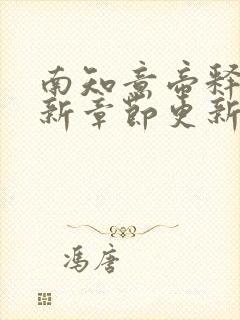 南知意帝释
新章节更新
冯唐